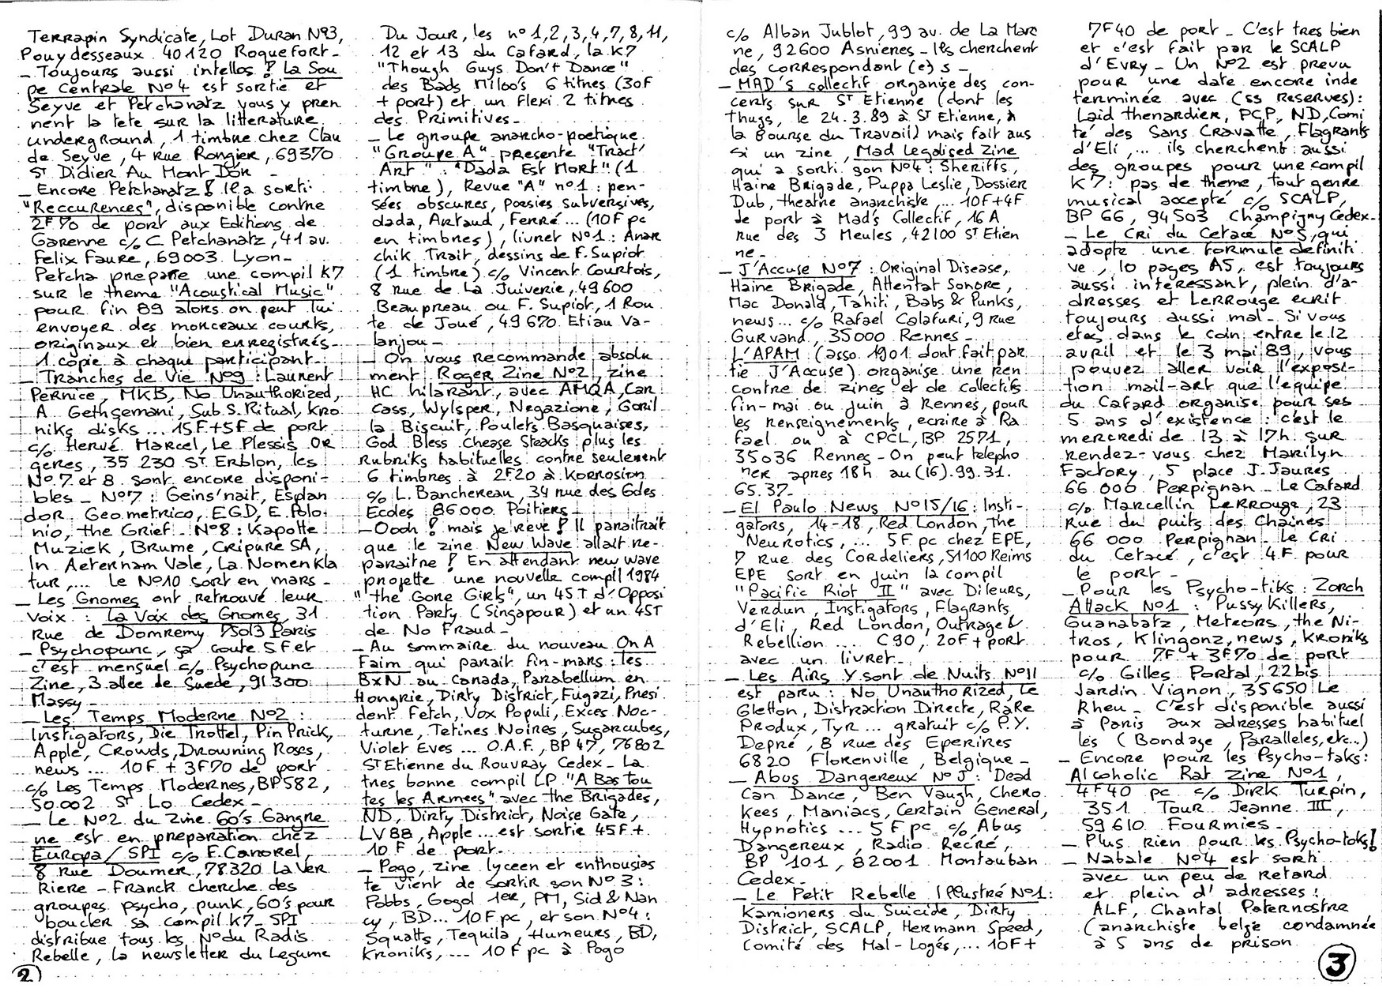 Terrapin Syndicate, Lot Duran N°3,
Pouydesseaux 40120 Roquefort_
_ Toujours aussi intellos ! la Sou
pe Centrale N°4 est sortie et
Seyve et Petchanatz vous y pren
nent la tete sur la litterature
underground, 1 timbre chez Clau
de Seyve, 4 rue Rongier, 69370
St Didier Au Mont Dor_
_ Encore Petchanatz ! Il a sorti
"Reccurences", disponible contre
2F70 de port aux Editions de
Garenne c/o C. Petchanatz, 41 av.
Felix Faure, 69003 Lyon_
Petcha prepare une compil K7
sur le theme "Acoustical Music"
pour fin 89 alors on peut lui
envoyer des morceaux courts,
originaux et bien enregistrés_
1 copie à chaque participant_
_ Tranches de Vie N°9 : Laurent
Pernice, MKB, No Unauthorized,
A Gethsemani, Sub.S.Ritual, kro
niks disks ... 15F+5F de port
c/o Hervé Marcel, Le Plessis Or
geres, 35 230 St Erblon, les
No 7 et 8 sont encore disponi-
bles _ N°7 : Geins'nait, Esplan
dor Geometrico, EGD, E.Polo-
nio, the Grief _ N°8 : Kapotte
Muziek, Brume, Cripure SA,
In Aeternam Vale, La Nomenkla
tur, ... Le N°10 sort en mars_
_ Les Gnomes ont retrouvé leur
voix : La Voix des Gnomes, 31
rue de Domremy 75013 Paris
_ Psychopunc, ça coute 5F et
c'est mensuel c/o Psychopunc
Zine, 3 allee de Suede, 91300
Massy_
_ Les Temps Moderne N°2 :
Instigators, Die Trottel, Pin Prick,
Apple, Crowds, Drowning Roses,
news ... 10F + 3F70 de port
c/o Les Temps Modernes, BP582,
50.002 St Lo Cedex_
_ Le N°2 du zine 60's Gangre
ne est en preparation chez
Europa/SPI c/o F. Canorel,
8 rue Doumer, 78.320 La Ver
riere _ Franck cherche des
groupes psycho, punk, 60's pour
boucler sa compil K7_ SPI
distribue tous les N° du Radis
Rebelle, la newsletter du Legume
2
Du Jour, les n° 1,2,3,4,7,8,11,
12 et 13 du Cafard, la K7
"Though Guys Don't Dance"
des Bads Miloo's 6 titres (30F
+ port) et un flexi 2 titres
des Primitives_
_ Le groupe anarcho-poetique
"Groupe A" presente "Tract'
Art" : "Dada Est Mort" (1
timbre), Revue "A" n°1 : pen-
sées obscures, poesies subversives,
dada, Artaud, Ferré ... (10F pc
en timbres), livret N°1 : Anar
chik Trait, dessins de F. Supiot
(1 timbre) c/o Vincent Courtois,
8 rue de La Juiverie, 49600
Beaupreau ou F. Supiot, 1 Rou
te de Joué, 49 670 Etiau Va-
lanjou_
_ On vous recommande absolu
ment Roger Zine N°2, zine
HC hilarant, avec AMQA, Car
cass, Wylsper, Negazione, Goril
la Biscuit, Poulets Basquaises,
God Bless Cheese Steacks plus les
rubriks habituelles contre seulement
6 timbres à 2F20 à Korrosion
c/o L. Banchereau, 34 rue des Gdes
Ecoles 86000 Poitiers_
_ Oooh ! mais je reve ! Il paraitrait
que le zine New Wave allait re-
paraitre ! En attendant new wave
projette une nouvelle compil 1984
"the Gone Girls", un 45T d'Opposi
tion Party (Singapour) et un 45T
de No Fraud_
_ Au sommaire du nouveau On A
Faim qui parait fin-mars : les
BxN au Canada, Parabellum en
Hongrie, Dirty District, Fugazi, Presi
dent Fetch, Vox Populi, Exces Noc-
turne, Tetines Noires, Sugarcubes,
Violet Eves ... O.A.F, BP 47, 76802
St Etienne du Rouvray Cedex _ La
tres bonne compil LP "A Bas Tou
tes les Armees" avec the Brigades,
ND, Dirty District, Noise Gate,
LV88, Apple ... est sortie 45F +
10 F de port_
_ Pogo, zine lyceen et enthousias
te vient de sortir son N°3 :
Pobbs, Gogol 1er, PM, Sid & Nan
cy, BD ... 10F pc, et son N°4 :
Squatts, Tequila, Humeurs, BD,
kroniks, ... 10 F pc à Pogo
c/o Alban Jublot, 99 av. de La Mar
ne, 92600 Asnieres _ Ils cherchent
des correspondant(e)s_
_ MAD's collectif organise des con-
certs sur St Etienne (dont les
Thugs, le 24.3.89 à St Etienne, à
la Bourse du Travail) mais fait aus
si un zine, Mad Legalised Zine
qui a sorti son N°4 : Sheriffs,
Haine Brigade, Puppa Leslie, Dossier
Dub, theatre anarchiste, ... 10F+4F
de port à Mad's Collectif, 16 A
rue des 3 Meules, 42100 St Etien
ne_
_ J'Accuse N°7 : Original Disease,
Haine Brigade, Attentat Sonore,
Mac Donald, Tahiti, Babs & Punks,
news ... c/o Rafael Calafuri, 9 rue
Gurvand, 35000 Rennes_
L'APAM (asso 1901 dont fait par
tie J'Accuse) organise une ren
contre de zines et de collectifs
fin-mai ou juin à Rennes, pour
les renseignements, ecrire à Ra
fael ou à CPCL, BP 2571,
35036 Rennes _ On peut telepho
ner apres 18h au (16).99.31.
65.37_
_ El Paulo News N°15/16 : Insti-
gators, 14-18, Red London, the
Neurotics, ... 5F pc chez EPE,
7 rue des Cordeliers, 51100 Reims
EPE sort en juin la compil
"Pacific Riot II" avec Dileurs,
Verdun, Instigators, Flagrants
d'Eli, Red London, Outrage &
Rebellion ... C90, 20F + port
avec un livret_
_ Les Airs Y sont de Nuits N°11
est paru : No Unauthorized, Le
Gletton, Distraction Directe, Rare
Produx, Tyr ... gratuit c/o P.Y.
Depré, 8 rue des Eperires
6820 Florenville, Belgique_
_ Abus Dangereux N° J : Dead
Can Dance, Ben Vaugh, Chero
kees, Maniacs, Certain General,
Hypnotics ... 5 F pc c/o Abus
Dangereux, Radio Recré,
BP 101, 82001 Montauban
Cedex_
_ Le Petit Rebelle Illustré N°1 :
Kamioners du Suicide, Dirty
District, SCALP, Hermann Speed,
Comité des Mal-Logés, ... 10F+
7F40 de port _ C'est tres bien
et c'est fait par le SCALP
d'Evry _ Un N°2 est prevu
pour une date encore inde
terminée avec (ss reserves) :
Laid thenardier, PCP, ND, Comi
té des Sans Cravatte, Flagrants
d'Eli, ... ils cherchent aussi
des groupes pour une compil
K7 : pas de theme, tout genre
musical accepté c/o SCALP,
BP 66, 94503 Champigny Cedex_
_ Le Cri du Cetacé N°5, qui
adopte une formule definiti
ve, 10 pages A5, est toujours
aussi intéressant, plein d'a-
dresses et LerRouge ecrit
toujours aussi mal _ Si vous
etes dans le coin entre le 12
avril et le 3 mai 89, vous
pouvez aller voir l'exposi-
tion mail-art que l'equipe
du Cafard organise pour ses
5 ans d'existence : c'est le
mercredi de 13 à 17h sur
rendez-vous chez Marilyn
Factory, 5 place J. Jaures
66 000 Perpignan _ Le Cafard
c/o Marcellin LerRouge, 23
rue du puits des Chaines
66 000 Perpignan _ Le Cri
du Cetacé, c'est 4F pour
le port_
_ Pour les Psycho-tiks : Zorch
Attack N°1 : Pussy Killers,
Guanabatz, Meteors, the Ni-
tros, Klingonz, news, kroniks
pour 7F + 3F70 de port
c/o Gilles Portal, 22bis
Jardin Vignon, 35650 Le
Rheu _ C'est disponible aussi
à Paris aux adresses habituel
les (Bondage, Paralleles, etc...)
_ Encore pour les Psycho-taks :
Alcoholic Rat Zine N°1,
4F40 pc c/o Dirk Turpin,
351 Tour Jeanne III,
59610 Fourmies_
_ Plus rien pour les Psycho-toks !
_ Nabate N°4 est sorti
avec un peu de retard
et plein d'adresses :
ALF, Chantal Paternostre
(anarchiste belge condamnée
à 5 ans de prison
3